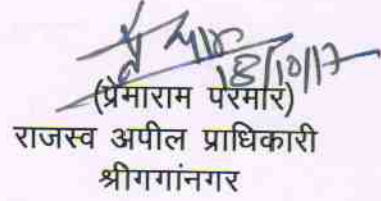 18/10/17
(प्रेमाराम परमार)
राजस्व अपील प्राधिकारी
श्रीगगांनगर